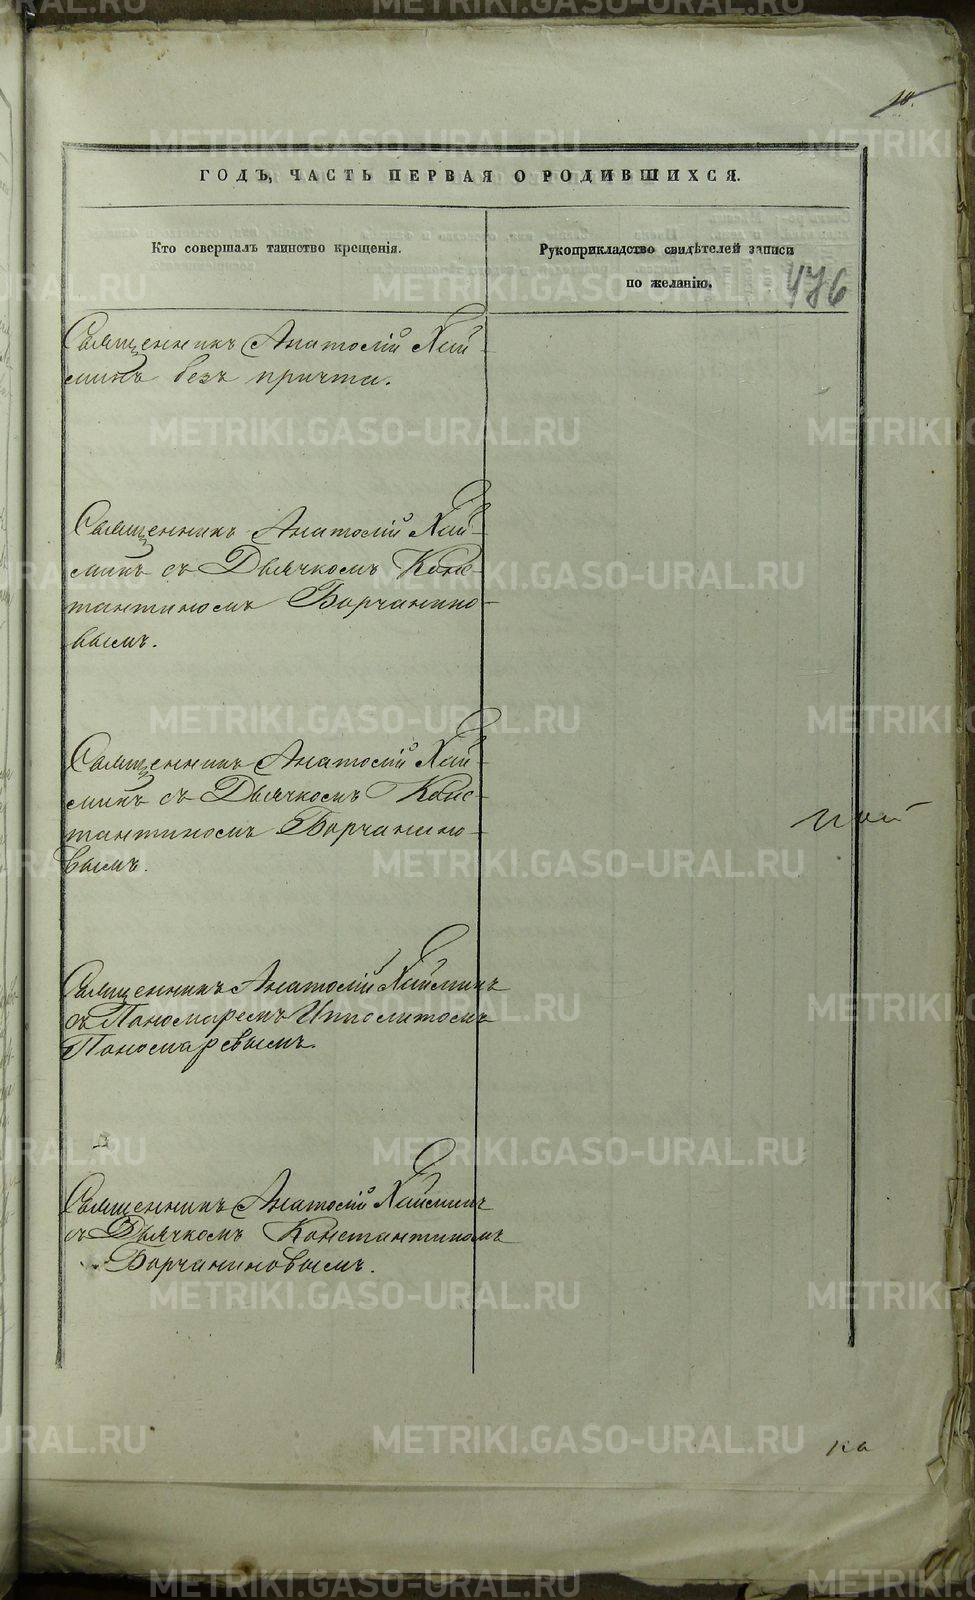 18.
ГОДЪ, ЧАСТЬ ПЕРВАЯ О РОДИВШИХСЯ.
Кто совершалъ таинство крещенія.
Рукоприкладство свидѣтелей записи
по желанію.
476
Священникъ Анатолій Хай-
минъ безъ причта.
Священникъ Анатолій Хай-
минъ съ Дьячкомъ Конс-
тантиномъ Борчанино-
вымъ.
Священникъ Анатолій Хай-
минъ съ Дьячкомъ Конс-
тантиномъ Борчанино-
вымъ.
Священникъ Анатолій Хайминъ
съ Пономаремъ Ипполитомъ
Пономаревымъ.
Священникъ Анатолій Хайминъ
съ Дьячкомъ Константиномъ
Борчаниновымъ.
METRIKI.GASO-URAL.RU